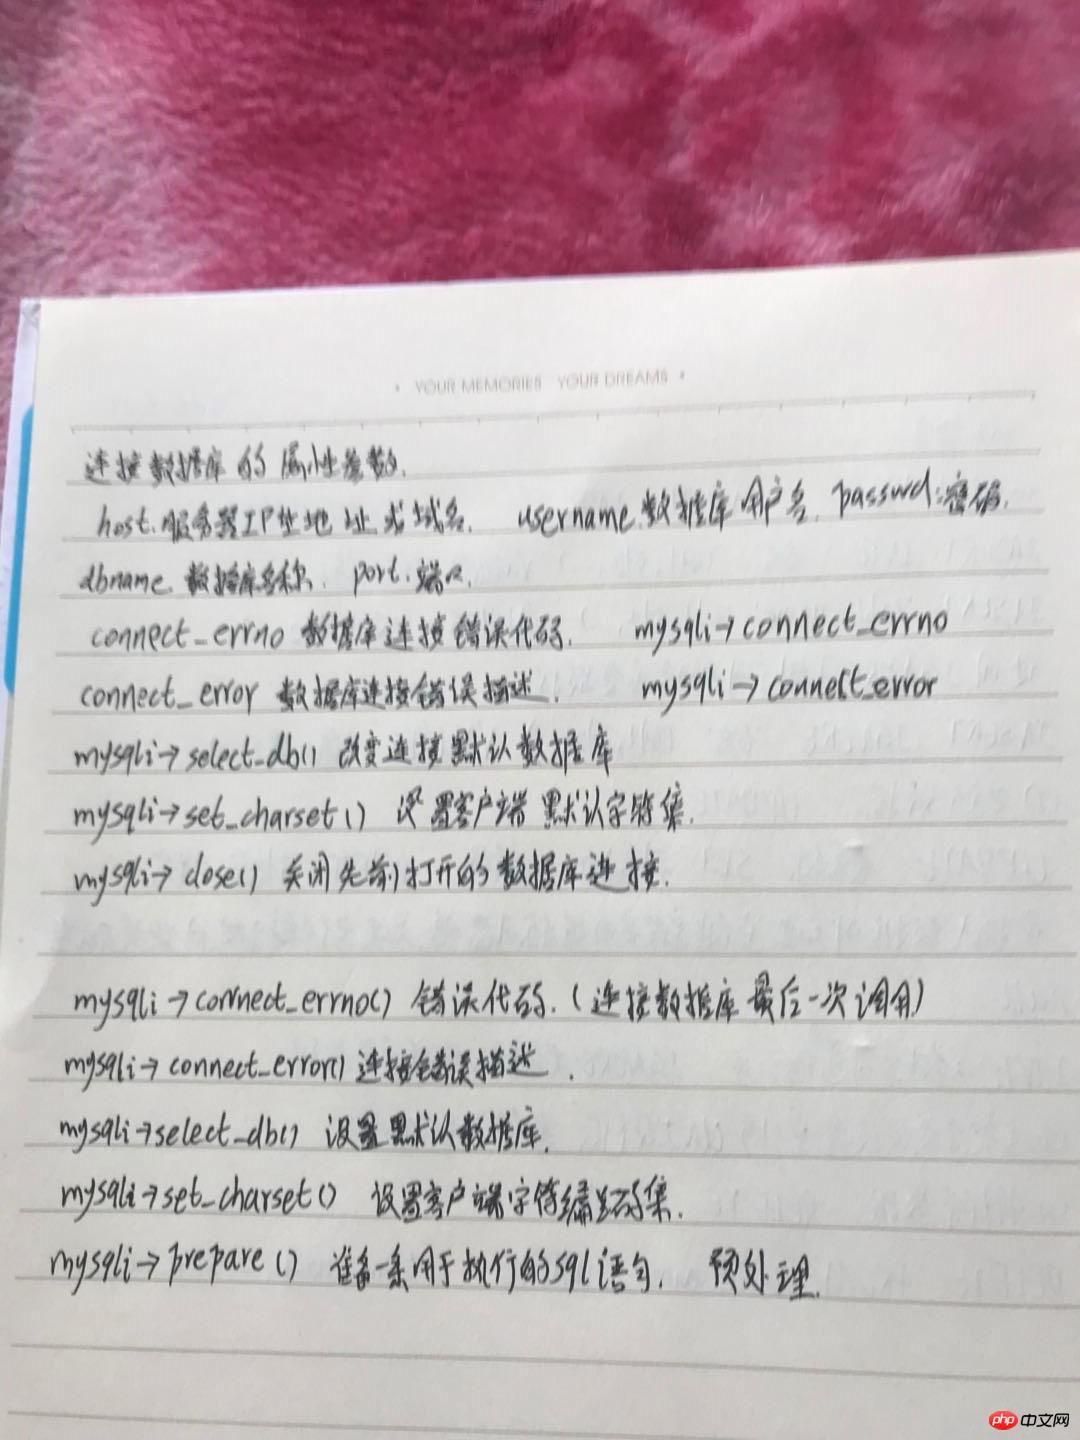 YOUR MEMORIES YOUR DREAMS
连接数据库的属性参数.
host.服务器IP地址或域名. username.数据库用户名. passwd:密码.
dbname.数据库名称. port.端口.
connect_errno 数据库连接错误代码. mysqli→connect_errno
connect_error 数据库连接错误描述. mysqli→connect_error
mysqli→select_db() 改变连接默认数据库
mysqli→set_charset() 设置客户端默认字符集.
mysqli→close() 关闭先前打开的数据库连接.
mysqli→connect_errno() 错误代码.(连接数据库最后一次调用)
mysqli→connect_error() 连接错误描述.
mysqli→select_db() 设置默认数据库.
mysqli→set_charset() 设置客户端字符编码集.
mysqli→prepare() 准备一条用于执行的sql语句. 预处理.
php 中文网